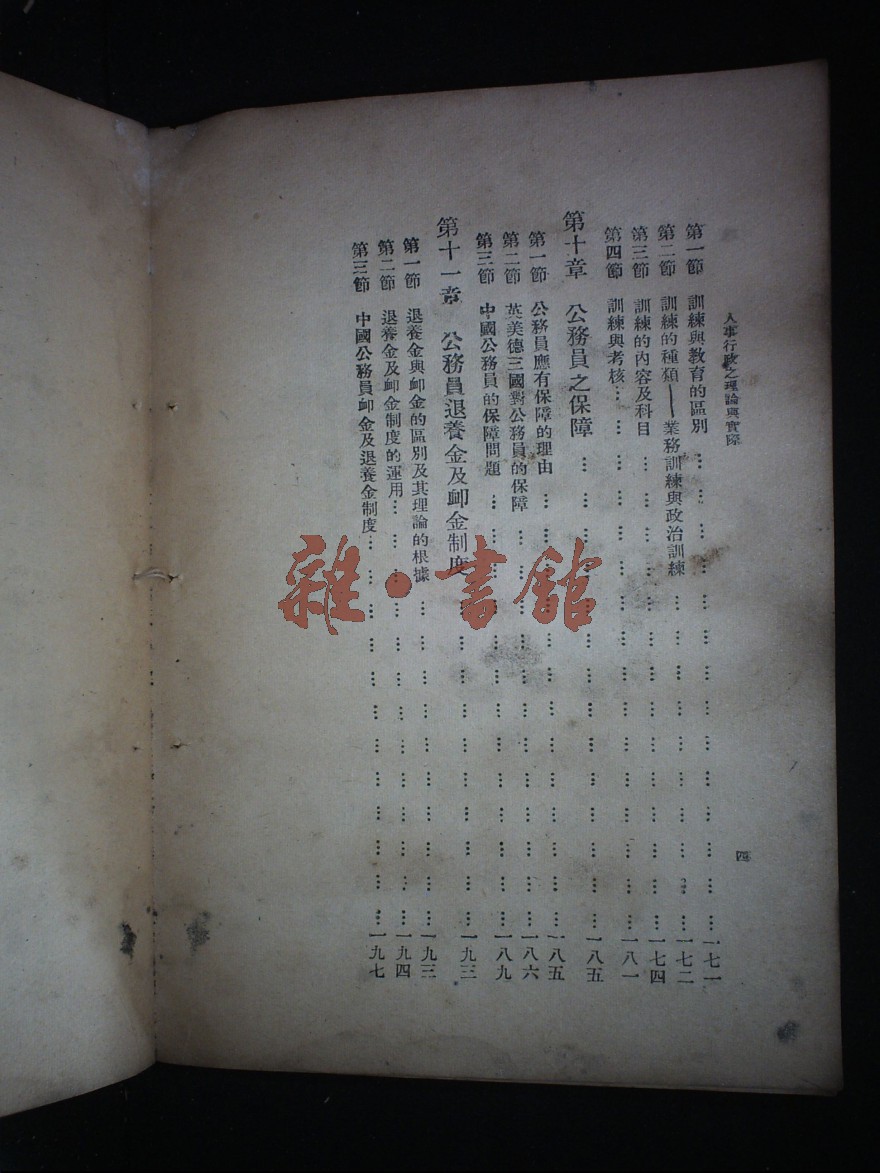 人事行政之理論與實際
四
第一節 訓練與教育的區別……一七一
第二節 訓練的種類——業務訓練與政治訓練……一七二
第三節 訓練的內容及科目……一七四
第四節 訓練與考核……一八一
第十章 公務員之保障……一八五
第一節 公務員應有保障的理由……一八五
第二節 英美德三國對公務員的保障……一八六
第三節 中國公務員的保障問題……一八九
第十一章 公務員退養金及卹金制度……一九三
第一節 退養金與卹金的區別及其理論的根據……一九三
第二節 退養金及卹金制度的運用……一九四
第三節 中國公務員卹金及退養金制度……一九七
雜·書館